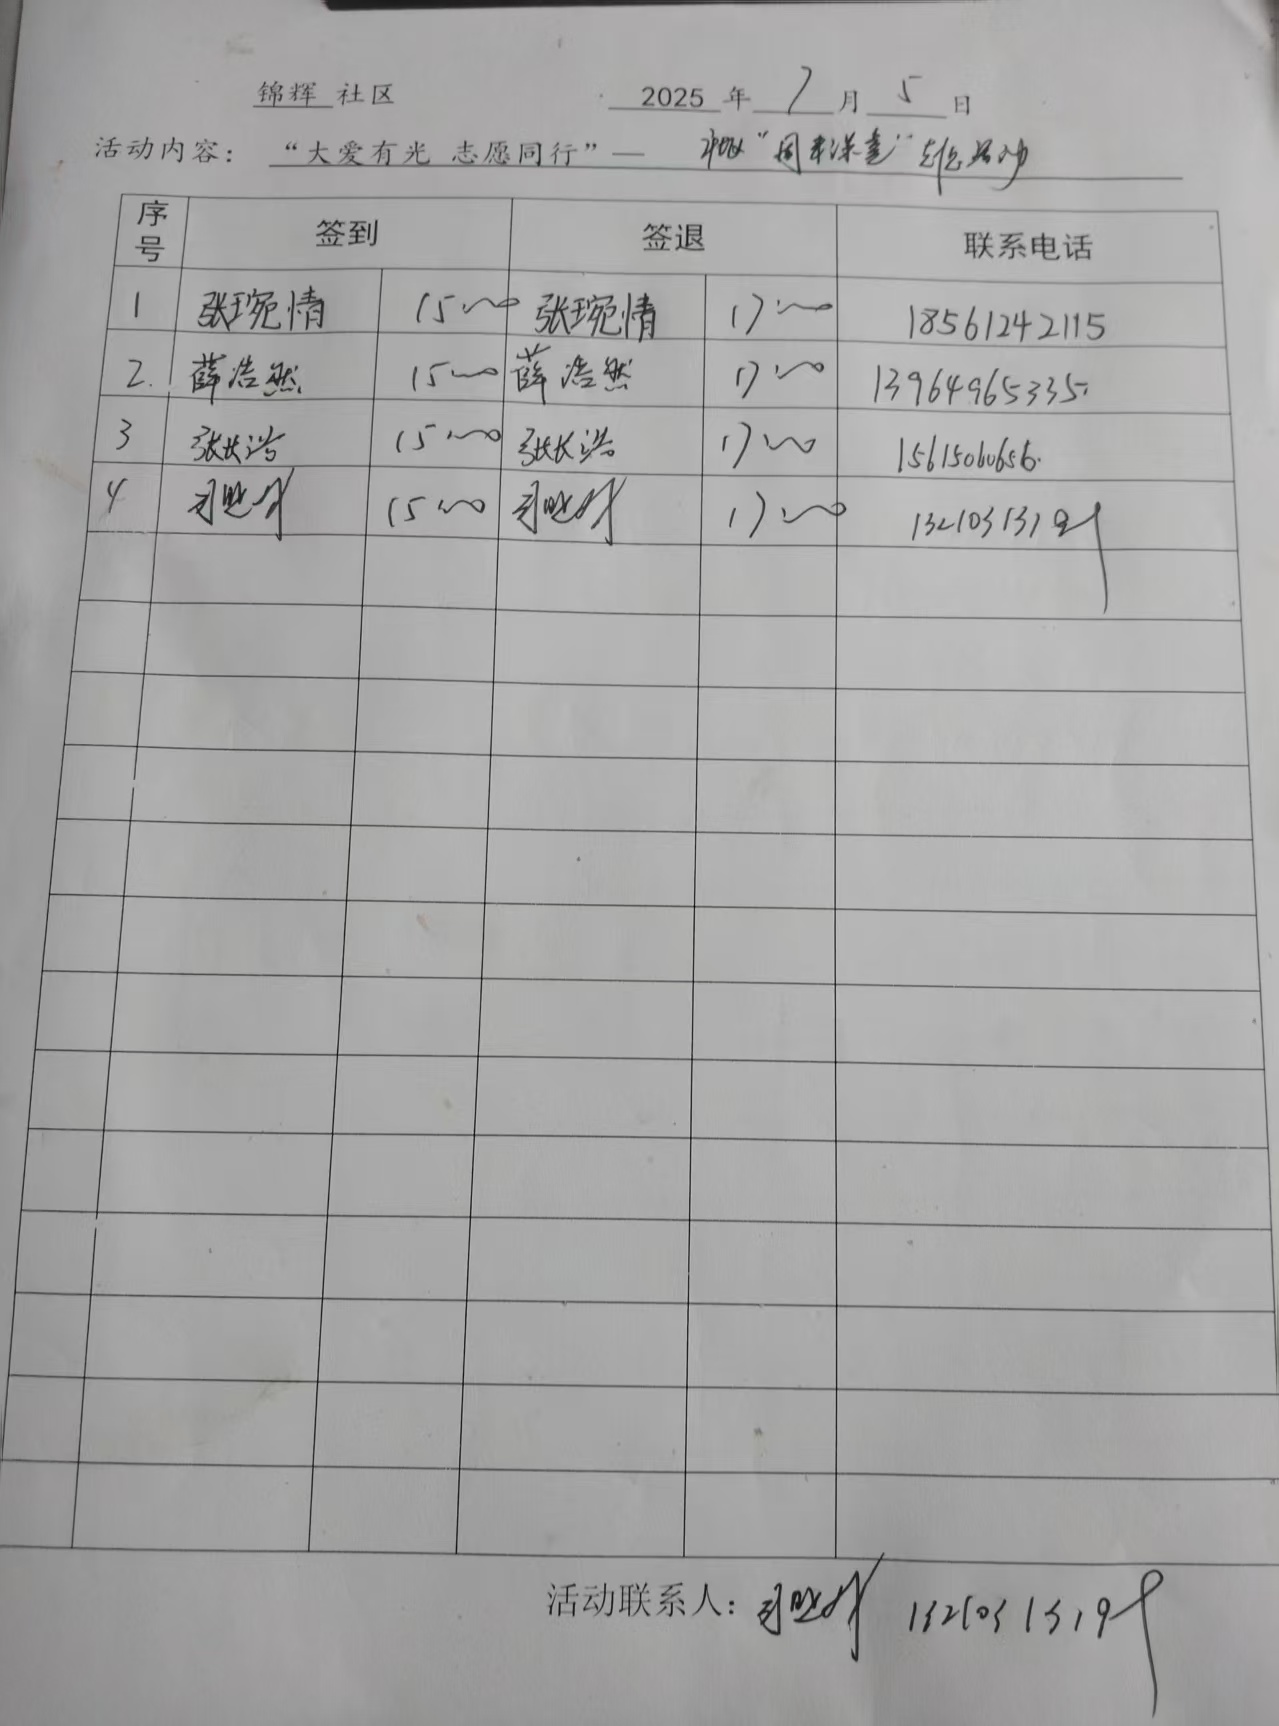 锦辉 社区 2025 年 7 月 5 日
活动内容：“大爱有光 志愿同行”—
序号 签到 签退 联系电话
1 张琬情 15:00 张琬情 17:00 18561242115
2. 薛浩然 15:00 薛浩然 17:00 13964965335
3 张长浩 15:00 张长浩 17:00 15615060656
4 15:00 17:00 13210313199
活动联系人： 13210313199